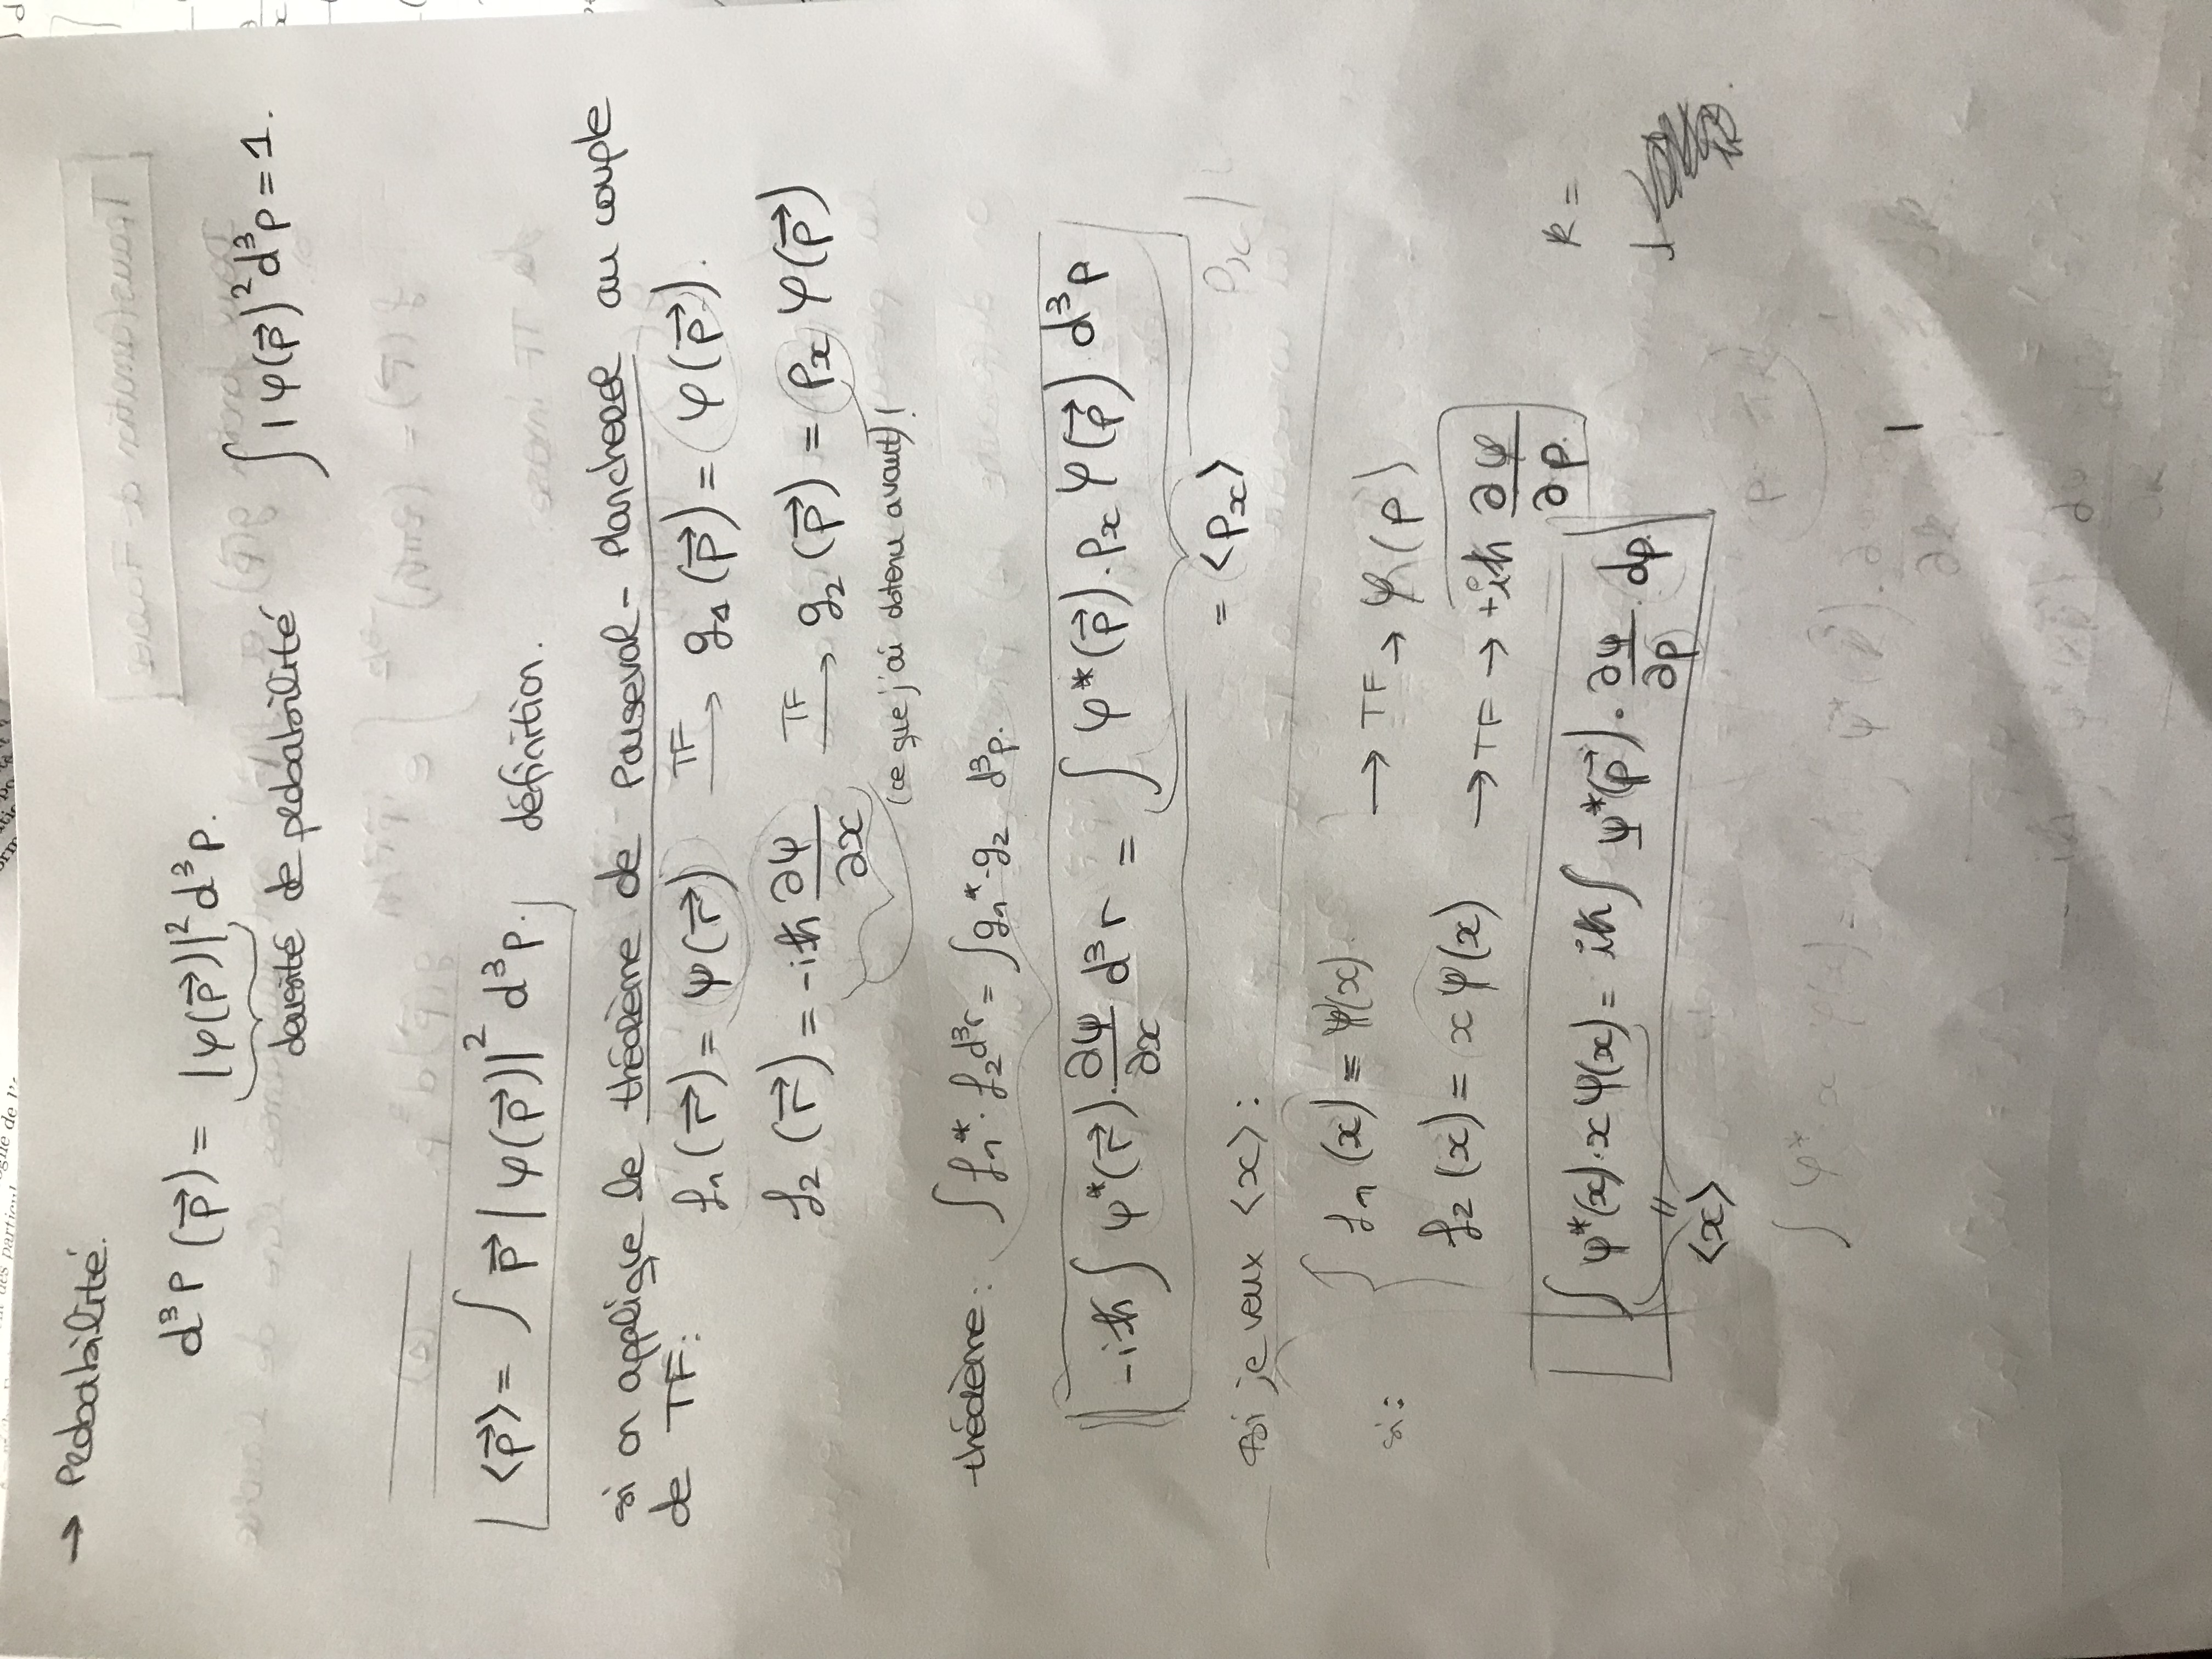 → Probabilité.
d³P (p⃗) = |φ(p⃗)|² d³p.
densité de probabilité
∫ |φ(p⃗)² d³p = 1.
<p⃗> = ∫ p⃗ |φ(p⃗)|² d³p. définition.
si on applique le théorème de Parseval - Plancherel au couple
de TF: f₁(r⃗) = ψ(r⃗) TF → g₁(p⃗) = φ(p⃗).
f₂(r⃗) = -iħ ∂ψ/∂x TF → g₂(p⃗) = pₓ φ(p⃗)
(ce que j'ai obtenu avant) !
théorème: ∫ f₁* · f₂ d³r = ∫ g₁* · g₂ d³p.
-iħ ∫ ψ*(r⃗) · ∂ψ/∂x d³r = ∫ φ*(p⃗) · pₓ φ(p⃗) d³p
= <pₓ>
si je veux <x> :
si: f₁(x) = ψ(x) → TF → φ(p)
f₂(x) = x ψ(x) → TF → +iħ ∂φ/∂p.
∫ ψ*(x) · x ψ(x) = iħ ∫ φ*(p⃗) · ∂φ/∂p dp.
=
<x>